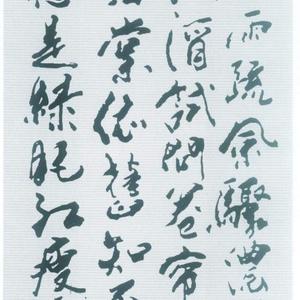 雨疏風驟濃
酒試問卷帘
棠依舊知否
是綠肥紅瘦